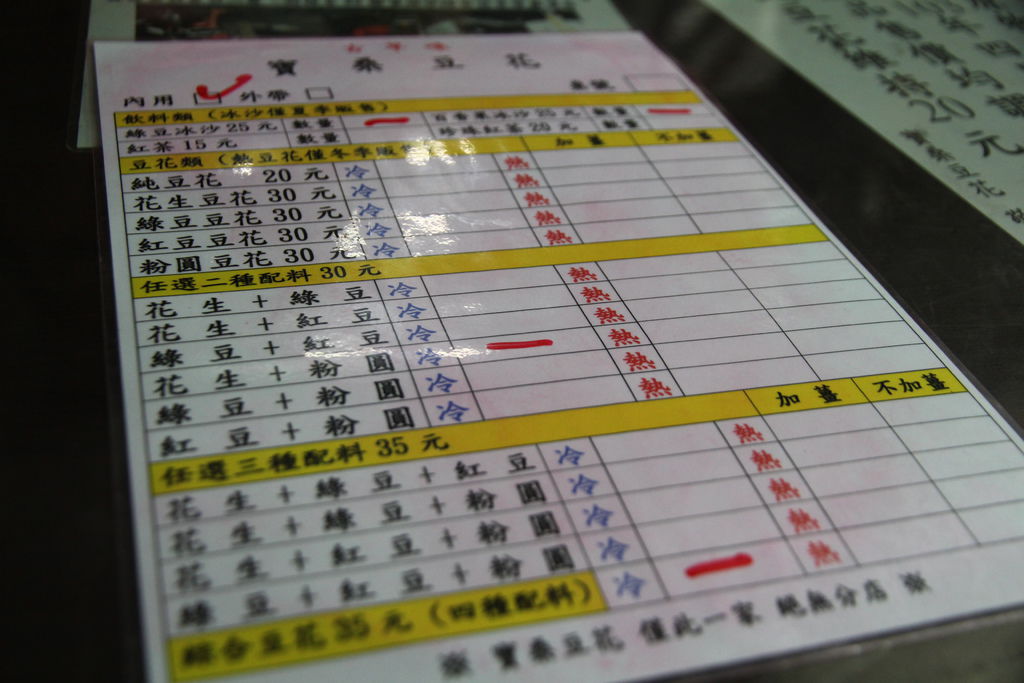 古早味
寶桑豆花
內用 外帶 桌號
飲料類 (冰沙僅夏季販售)
綠豆冰沙25元 數量 百香果冰沙25元 數量
紅茶15元 數量 珍珠紅茶20元 數量
豆花類 (熱豆花僅冬季販 加薑 不加薑
純豆花 20元 冷 熱
花生豆花30元 冷 熱
綠豆豆花30元 冷 熱
紅豆豆花30元 冷 熱
粉圓豆花30元 冷
任選二種配料30元
花生+綠豆 冷 熱
花生+紅豆 冷 熱
綠豆+紅豆 冷 熱
花生+粉圓 冷 熱
綠豆+粉圓 冷 熱
紅豆+粉圓 冷 熱
任選三種配料35元 加薑 不加薑
花生+綠豆+紅豆 冷 熱
花生+綠豆+粉圓 冷 熱
花生+紅豆+粉圓 冷 熱
綠豆+紅豆+粉圓 冷 熱
綜合豆花35元 (四種配料) 冷 熱
※ 寶桑豆花 僅此一家 絕無分店 ※
四
價均調
豆花維持20元
寶桑豆花